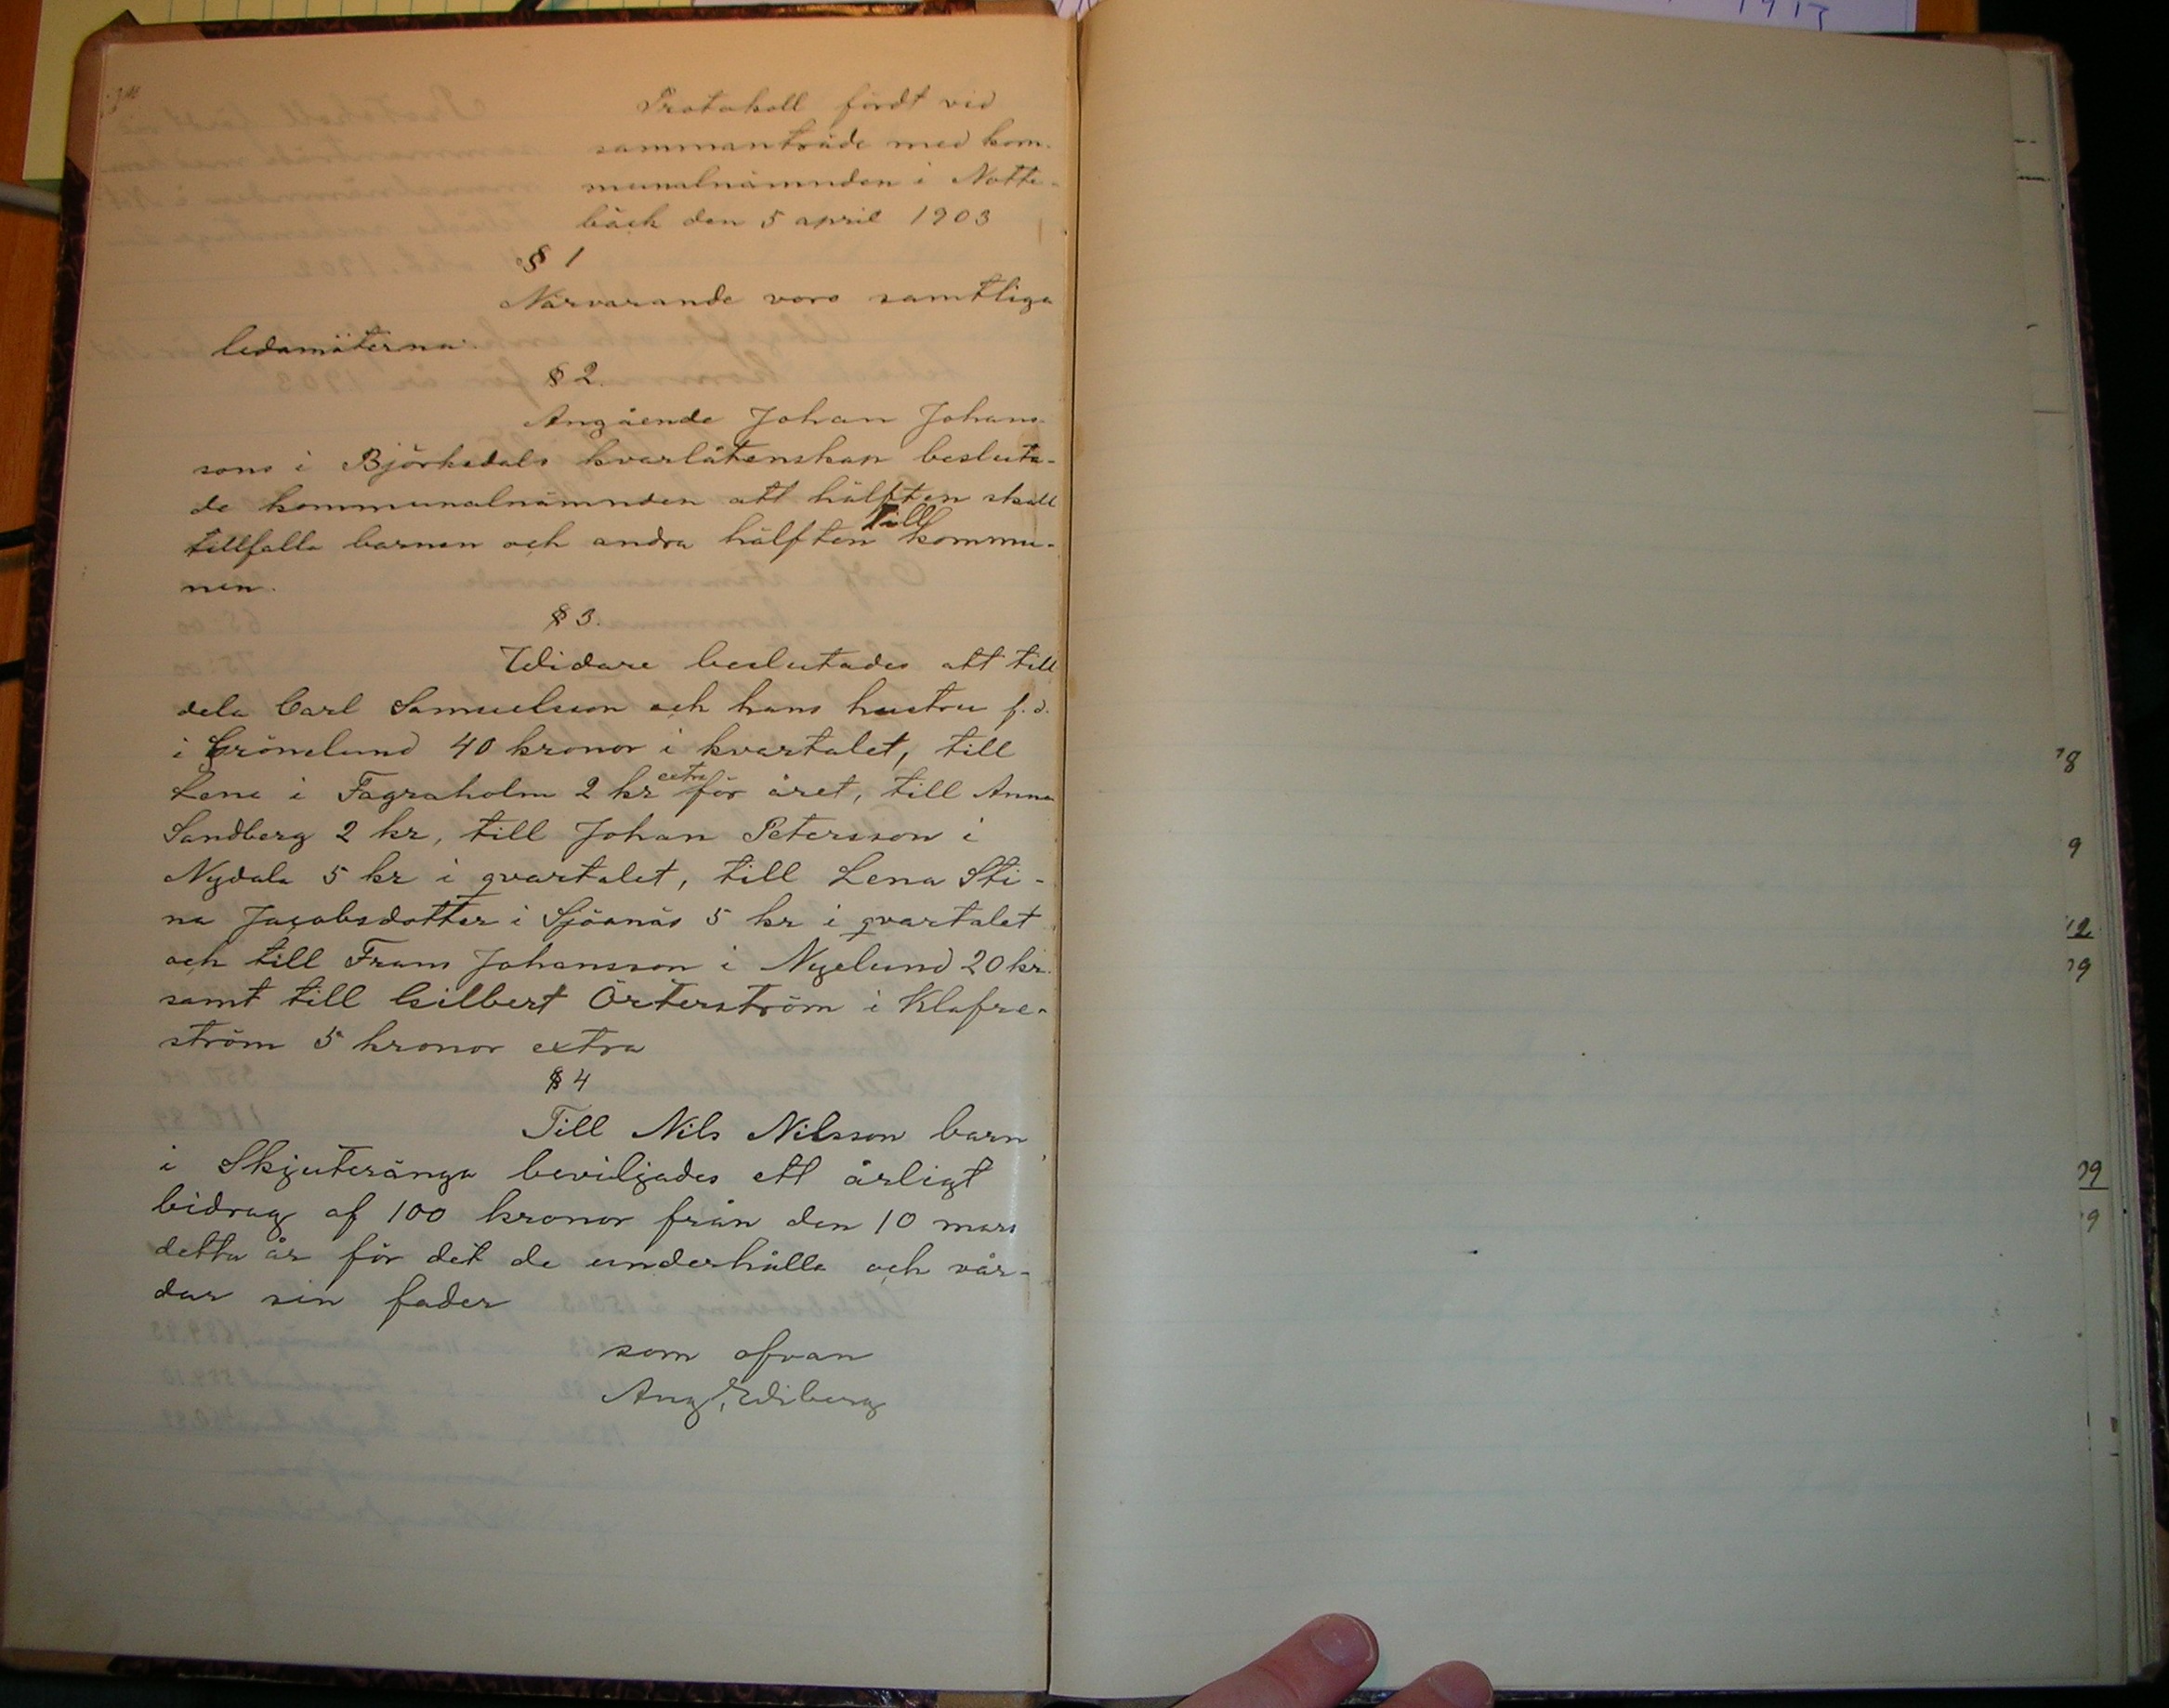 Protokoll fördt vid
sammanträde med kom-
munalnämnden i Notte-
bäck den 5 april 1903
§ 1
Närvarande voro samtliga
ledamöterna.
§ 2.
Angående Johan Johans-
sons i Björksdals kvarlåtenskap besluta-
de kommunalnämnden att hälften skall
tillfalla barnen och andra hälften till kommu-
nen.
§ 3.
Widare beslutades att till
dela Carl Samuelsson och hans hustru f.d.
i Grönelund 40 kronor i kvartalet, till
Lena i Fagraholm 2 kr extra för året, till Anna
Sandberg 2 kr, till Johan Petersson i
Nydala 5 kr i qvartalet, till Lena Sti-
na Jacobsdotter i Sjöanäs 5 kr i qvartalet
och till Frans Johansson i Nyelund 20 kr.
samt till Gilbert Örterström i Klafre-
ström 5 kronor extra
§ 4
Till Nils Nilsson barn
i Skjuteränga beviljades ett årligt
bidrag af 100 kronor från den 10 mars
detta år för det de underhålla och vår-
dar sin fader
som ofvan
Aug. Wiberg
1913
18
9
12
19
39
9